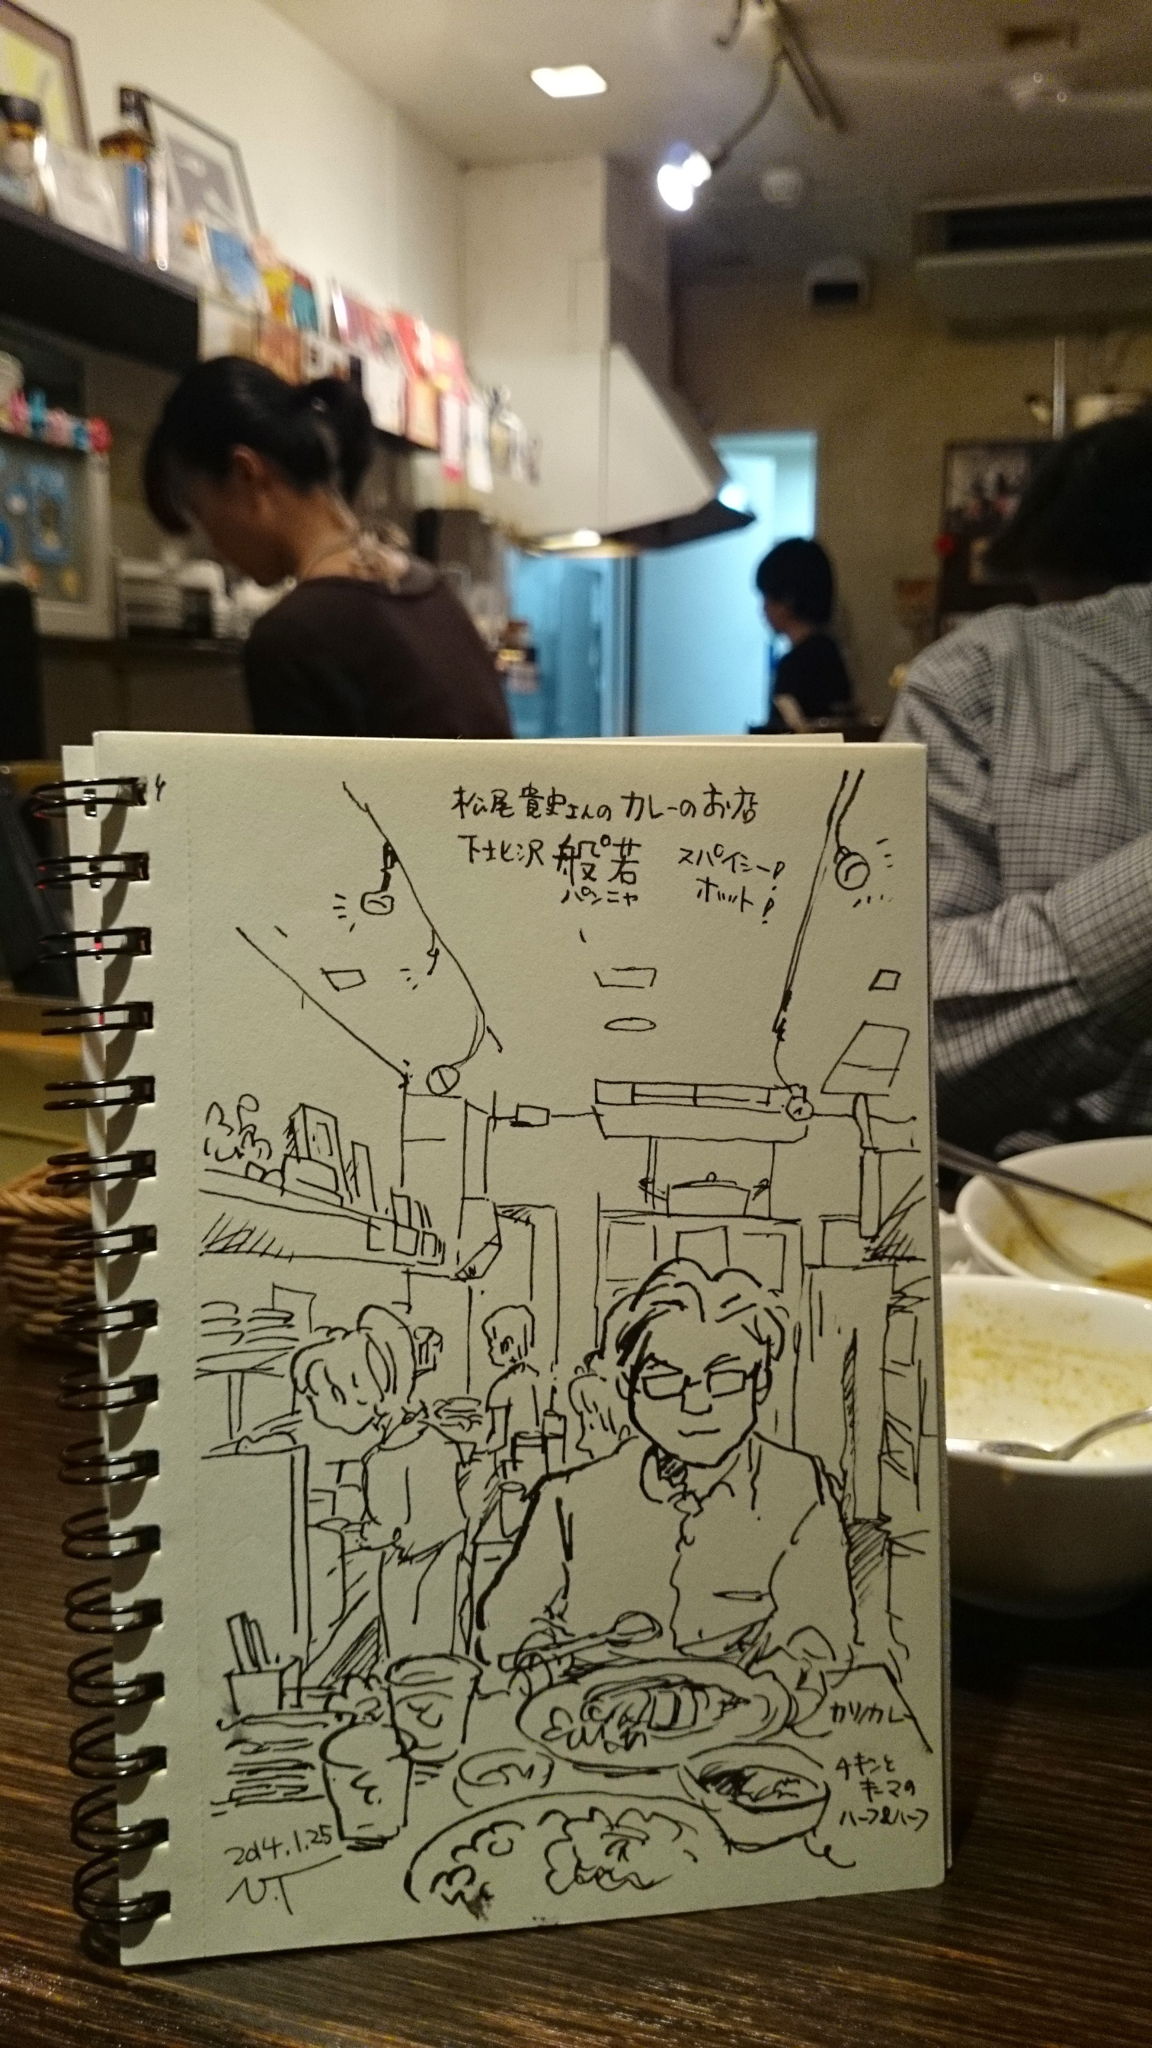 松尾貴史さんのカレーのお店
下北沢 般°若 スパイシー!
パンニャ ホット!
カツカレー
チキンと
キーマの
ハーフ&ハーフ
2014.1.25
N.T